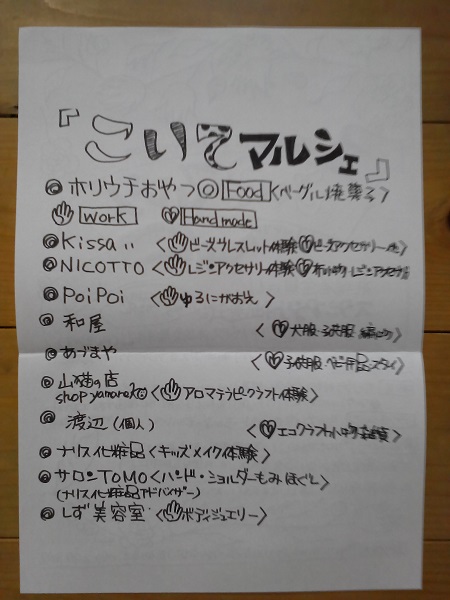 『こいてマルシェ』
◎ホリウチおやつ◎ Food <ベーグル焼菓子>
work Handmade
◎Kissa <ビーズブレスレット体験 ビーズアクセサリー>
◎NICOTTO <レジンアクセサリー体験 布小物・レジンアクセサリー>
◎PoiPoi <ゆるにがおえ>
◎和屋 <犬服・子供服>
◎あづまや <子供服・ベビー用品・スタイ>
◎山猫の店
shop yamaneko <アロマテラピークラフト体験>
◎渡辺(個人) <エコクラフト小物・雑貨>
◎ナリス化粧品<キッズメイク体験>
◎サロンTOMO<ハンド・ショルダーもみほぐし>
(ナリス化粧品アドバイザー)
◎しず美容室<ボディジュエリー>